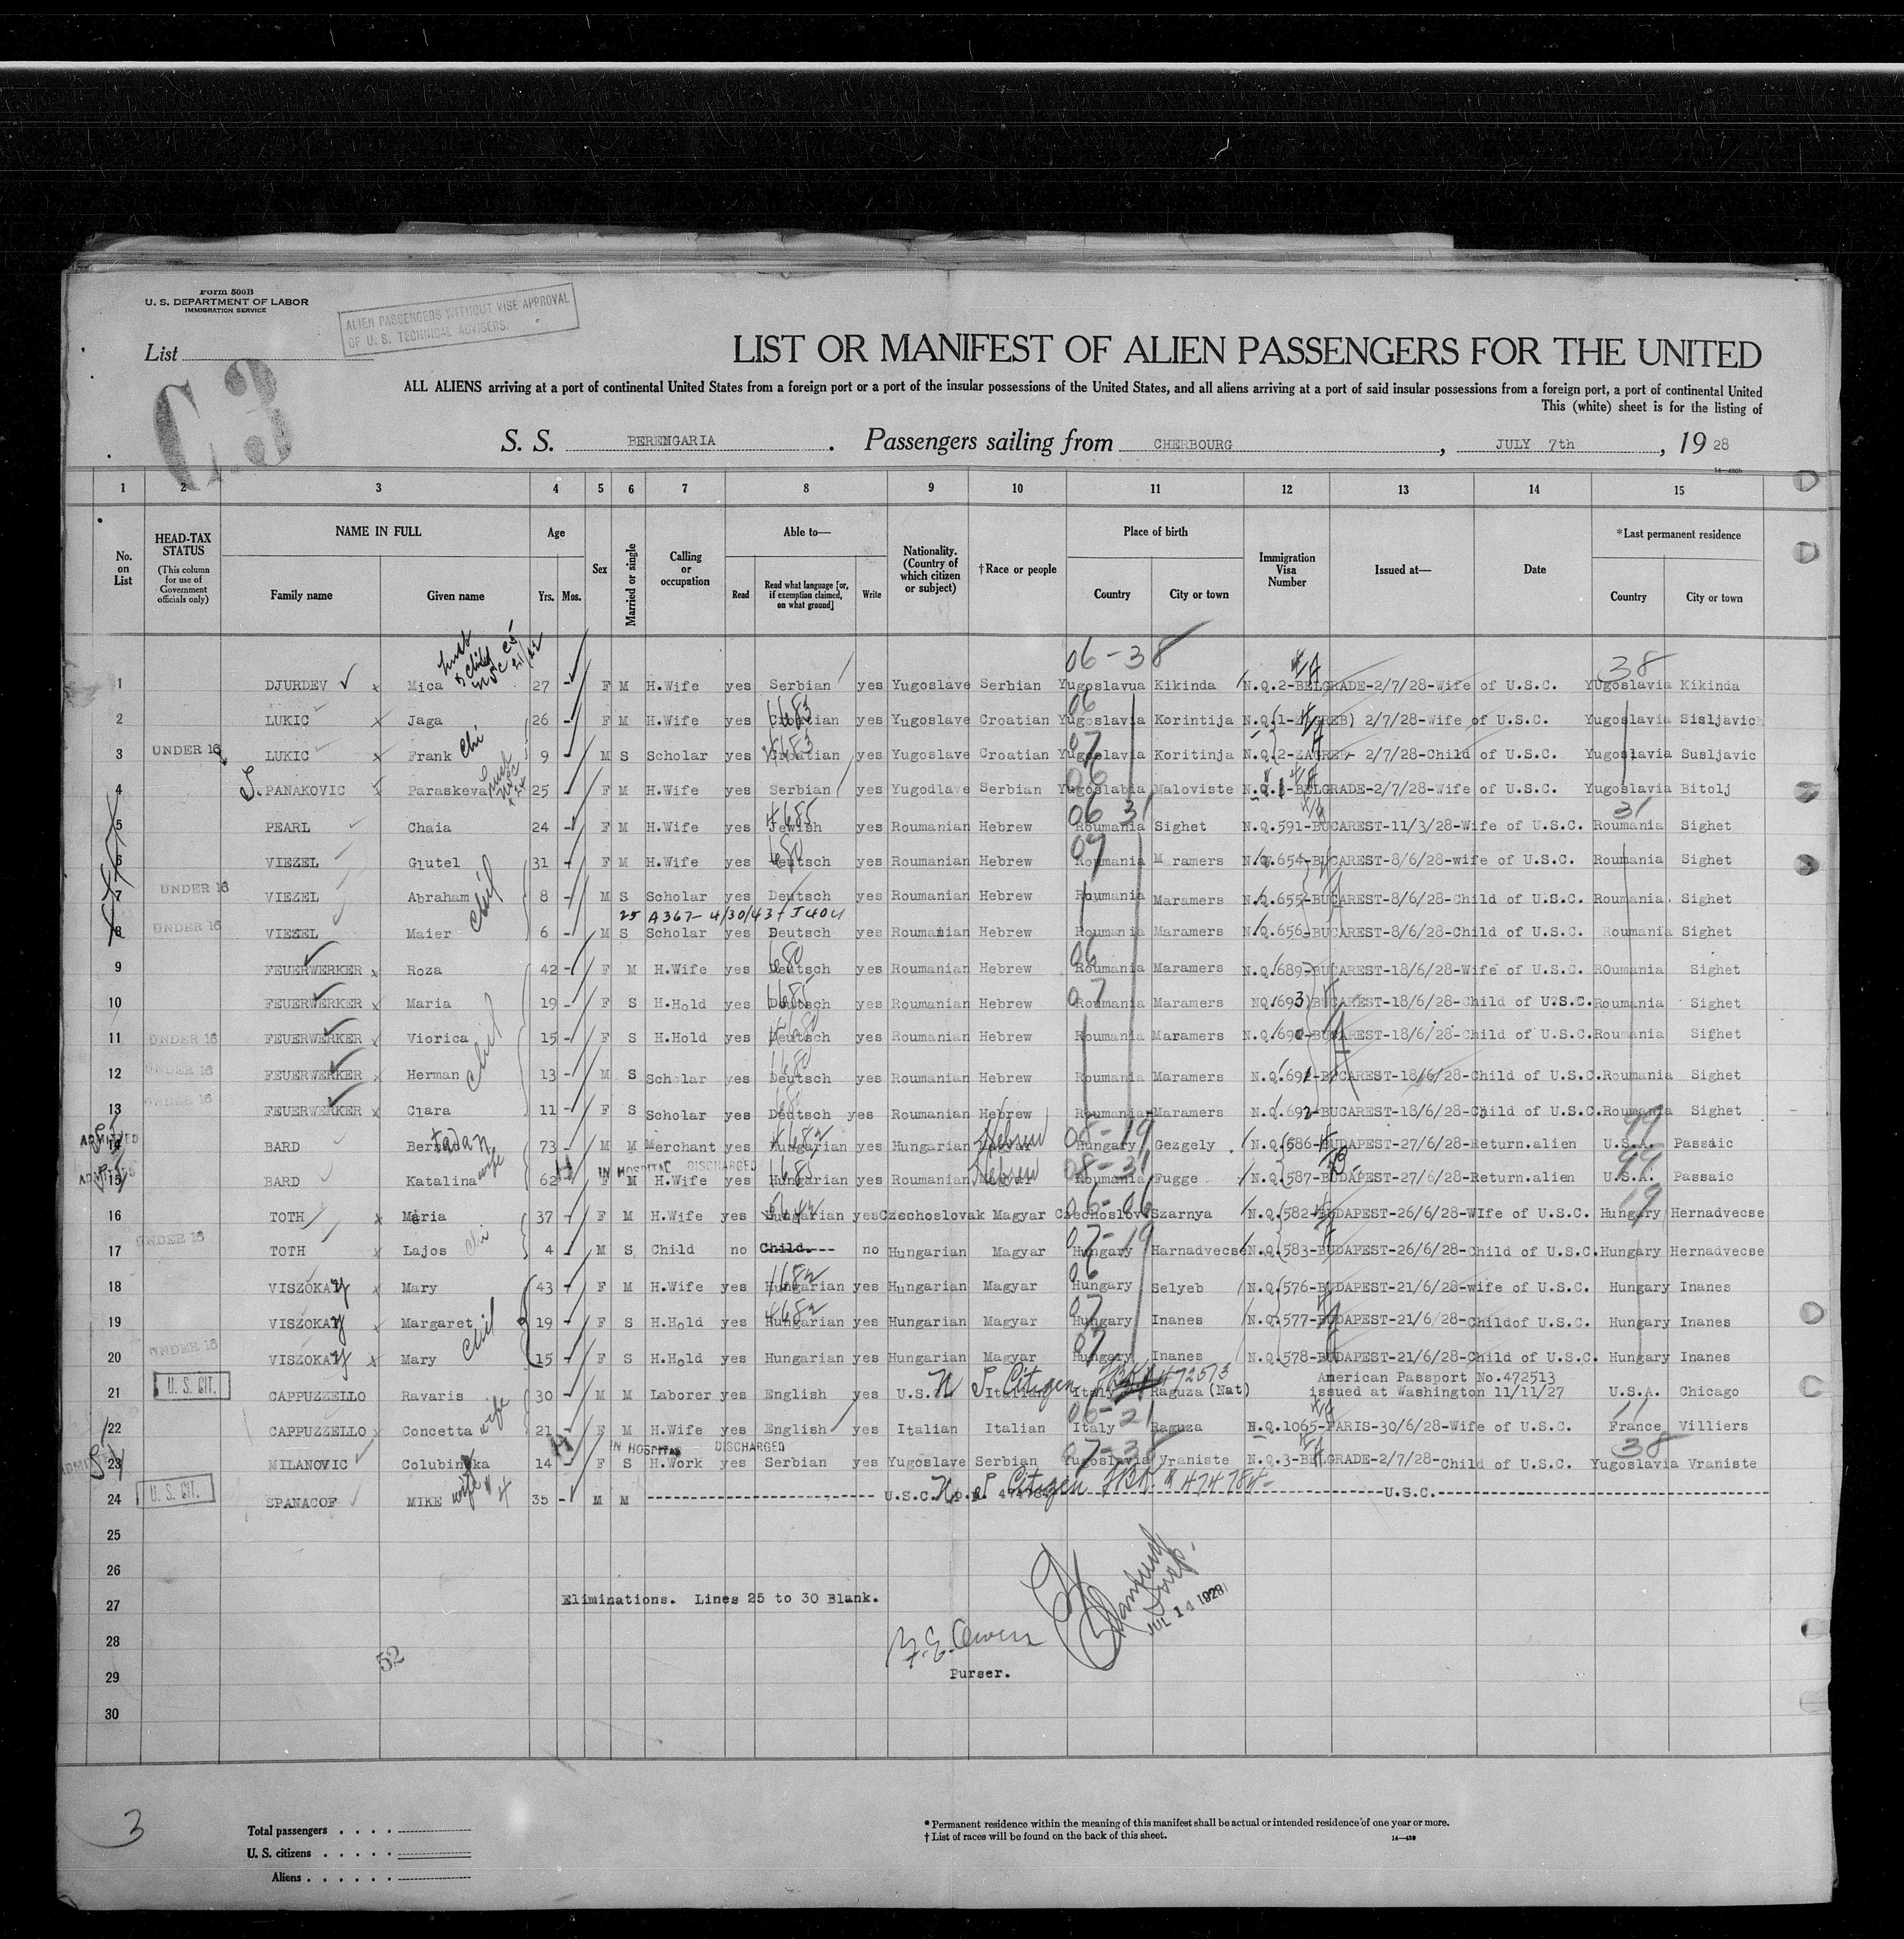 Form 500B
U. S. DEPARTMENT OF LABOR
IMMIGRATION SERVICE
ALIEN PASSENGERS WITHOUT VISE APPROVAL
OF U. S. TECHNICAL ADVISERS.
List
C.3
LIST OR MANIFEST OF ALIEN PASSENGERS FOR THE UNITED
ALL ALIENS arriving at a port of continental United States from a foreign port or a port of the insular possessions of the United States, and all aliens arriving at a port of said insular possessions from a foreign port, a port of continental United
This (white) sheet is for the listing of
S. S. BERENGARIA. Passengers sailing from CHERBOURG, JULY 7th, 19 28
1 2 3 4 5 6 7 8 9 10 11 12 13 14 15
No. on List
HEAD-TAX STATUS
(This column for use of Government officials only)
NAME IN FULL
Family name Given name
Age
Yrs. Mos.
Sex
Married or single
Calling or occupation
Able to—
Read Read what language [or, if exemption claimed, on what ground] Write
Nationality. (Country of which citizen or subject)
†Race or people
Place of birth
Country City or town
Immigration Visa Number
Issued at—
Date
*Last permanent residence
Country City or town
06-38 38
1 DJURDEV Mica 27 F M H.Wife yes Serbian yes Yugoslave Serbian Yugoslavua Kikinda N.Q.2-BELGRADE-2/7/28-Wife of U.S.C. YUgoslavia Kikinda
2 LUKIC Jaga 26 F M H.Wife yes Croatian yes Yugoslave Croatian Yugoslavia Korintija N.Q.(1-ZAGREB) 2/7/28-Wife of U.S.C. Yugoslavia Sisljavich
3 UNDER 16 LUKIC Frank chi 9 M S Scholar yes Croatian yes Yugoslave Croatian Yugoslavia Koritinja N.Q.2-ZAGREB- 2/7/28-Child of U.S.C. Yugoslavia Susljavic
4 S. PANAKOVIC Paraskeva 25 F M H.Wife yes Serbian yes Yugodlave Serbian Yugoslabia Maloviste N.Q. -BELGRADE-2/7/28-Wife of U.S.C. Yugoslavia Bitolj
5 PEARL Chaia 24 F M H.Wife yes Jewish yes Roumanian Hebrew Roumania Sighet N.Q.591-BUCAREST-11/3/28-Wife of U.S.C. Roumania Sighet
6 VIEZEL Glutel 31 F M H.Wife yes Deutsch yes Roumanian Hebrew Roumania Maramers N.Q.654-BUCAREST-8/6/28-wife of U.S.C. Roumania Sighet
7 UNDER 16 VIEZEL Abraham 8 M S Scholar yes Deutsch yes Roumanian Hebrew Roumania Maramers N.Q.655-BUCAREST-8/6/28-Child of U.S.C. Roumania. Sighet
25 A367- 4/30/43
8 UNDER 16 VIEZEL Maier 6 M S Scholar yes Deutsch yes Roumanian Hebrew Roumania Maramers N.Q.656-BUCAREST-8/6/28-Child of U.S.C. Roumania Sighet
9 FEUERWERKER Roza 42 F M H.Wife yes Deutsch yes Roumanian Hebrew Roumania Maramers N.Q.689-BUCAREST-18/6/28-Wife of U.S.C. ROumania Sighet
10 FEUERWERKER Maria 19 F S H.Hold yes Deutsch yes Roumanian Hebrew Roumania Maramers NQ.693)BUCAREST-18/6/28-Child of U.S.C.Roumania Sighet
11 UNDER 16 FEUERWERKER Viorica 15 F S H.Hold yes Deutsch yes Roumanian Hebrew Roumania Maramers N.Q.690-BUCAREST-18/6/28-Child of U.S.C.Roumania Sighet
12 UNDER 16 FEUERWERKER Herman 13 M S Scholar yes Deutsch yes Roumanian Hebrew Roumania Maramers N.Q.691-BUCAREST-18/6/28-Child of U.S.C.Roumania Sighet
13 UNDER 16 FEUERWERKER Clara 11 F S Scholar yes Deutsch yes Roumanian Hebrew Roumania-Maramers N.Q.692-BUCAREST-18/6/28-Child of U.S.C.Roumania Sighet
14 ADMITTED BARD 73 M M Merchant yes Hungarian yes Hungarian Magyar Hebrew Hungary Gezgely N.Q.586-BUDAPEST-27/6/28-Return.alien U.S.A. Passaic
IN HOSPITAL DISCHARGED
15 ADMITTED BARD Katalina wife 62 F M H.Wife yes Hungarian yes Roumanian Magyar Hebrew Roumania Fugge N.Q.587-BUDAPEST-27/6/28-Return.alien U.S.A. Passaic
16 TOTH Maria 37 F M H.Wife yes Hungarian yes Czechoslovak Magyar Czechoslov Szarnya N.Q.582-BUDAPEST-26/6/28-WIfe of U.S.C. Hungary Hernadvecse
17 UNDER 16 TOTH Lajos chi 4 M S Child no Child.--- no Hungarian Magyar Hungary Harnadvecse N.Q.583-BUDAPEST-26/6/28-Child of U.S.C.Hungary Hernadvecse
18 VISZOKAY Mary 43 F M H.Wife yes Hungarian yes Hungarian Magyar Hungary Selyeb N.Q.576-BUDAPEST-21/6/28-wife of U.S.C. Hungary Inanes
19 VISZOKAY Margaret 19 F S H.Hold yes Hungarian yes Hungarian Magyar Hungary Inanes N.Q.577-BUDAPEST-21/6/28-Childof U.S.C. Hungary Inanes
20 UNDER 16 VISZOKAY Mary 15 F S H.Hold yes Hungarian yes Hungarian Magyar Hungary Inanes N.Q.578-BUDAPEST-21/6/28-Child of U.S.C. Hungary Inanes
American Passport No.472513
21 U. S. CIT. CAPPUZZELLO Ravaris 30 M M Laborer yes English yes U.S. Italian Italy Raguza (Nat) issued at Washington 11/11/27 U.S.A. Chicago
22 CAPPUZZELLO Concetta wife 21 F M H.Wife yes English yes Italian Italian Italy Raguza N.Q.1065-PARIS-30/6/28-Wife of U.S.C. France Villiers
IN HOSPITAL DISCHARGED
23 ADMITTED MILANOVIC Colubinska 14 F S H.Work yes Serbian yes Yugoslave Serbian Yugoslavia Vraniste N.Q.3-BELGRADE-2/7/28-Child of U.S.C. Yugoslavia Vraniste
24 U. S. CIT. SPANACOF MIKE 35 M M U.S.C. Citizen 474784 U.S.C.
25
26
27 Eliminations. Lines 25 to 30 Blank.
JUL 14 1928
28
Owen
29 52 Purser.
30
3
Total passengers
U. S. citizens
Aliens
* Permanent residence within the meaning of this manifest shall be actual or intended residence of one year or more.
† List of races will be found on the back of this sheet.